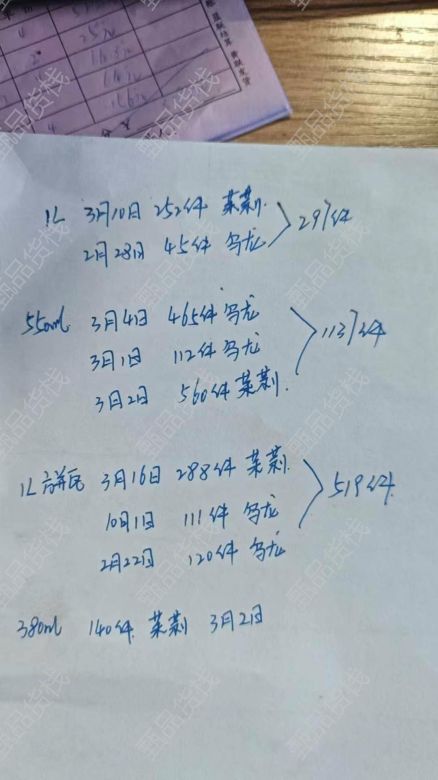 1L 3月10日 252件 茉莉
2月28日 45件 乌龙
297件
550ml 3月4日 465件 乌龙
3月1日 112件 乌龙
3月2日 560件 茉莉
1137件
1L 3月16日 288件 茉莉
10月1日 111件 乌龙
2月22日 120件 乌龙
519件
380ml 140件 茉莉 3月2日
甄品货栈